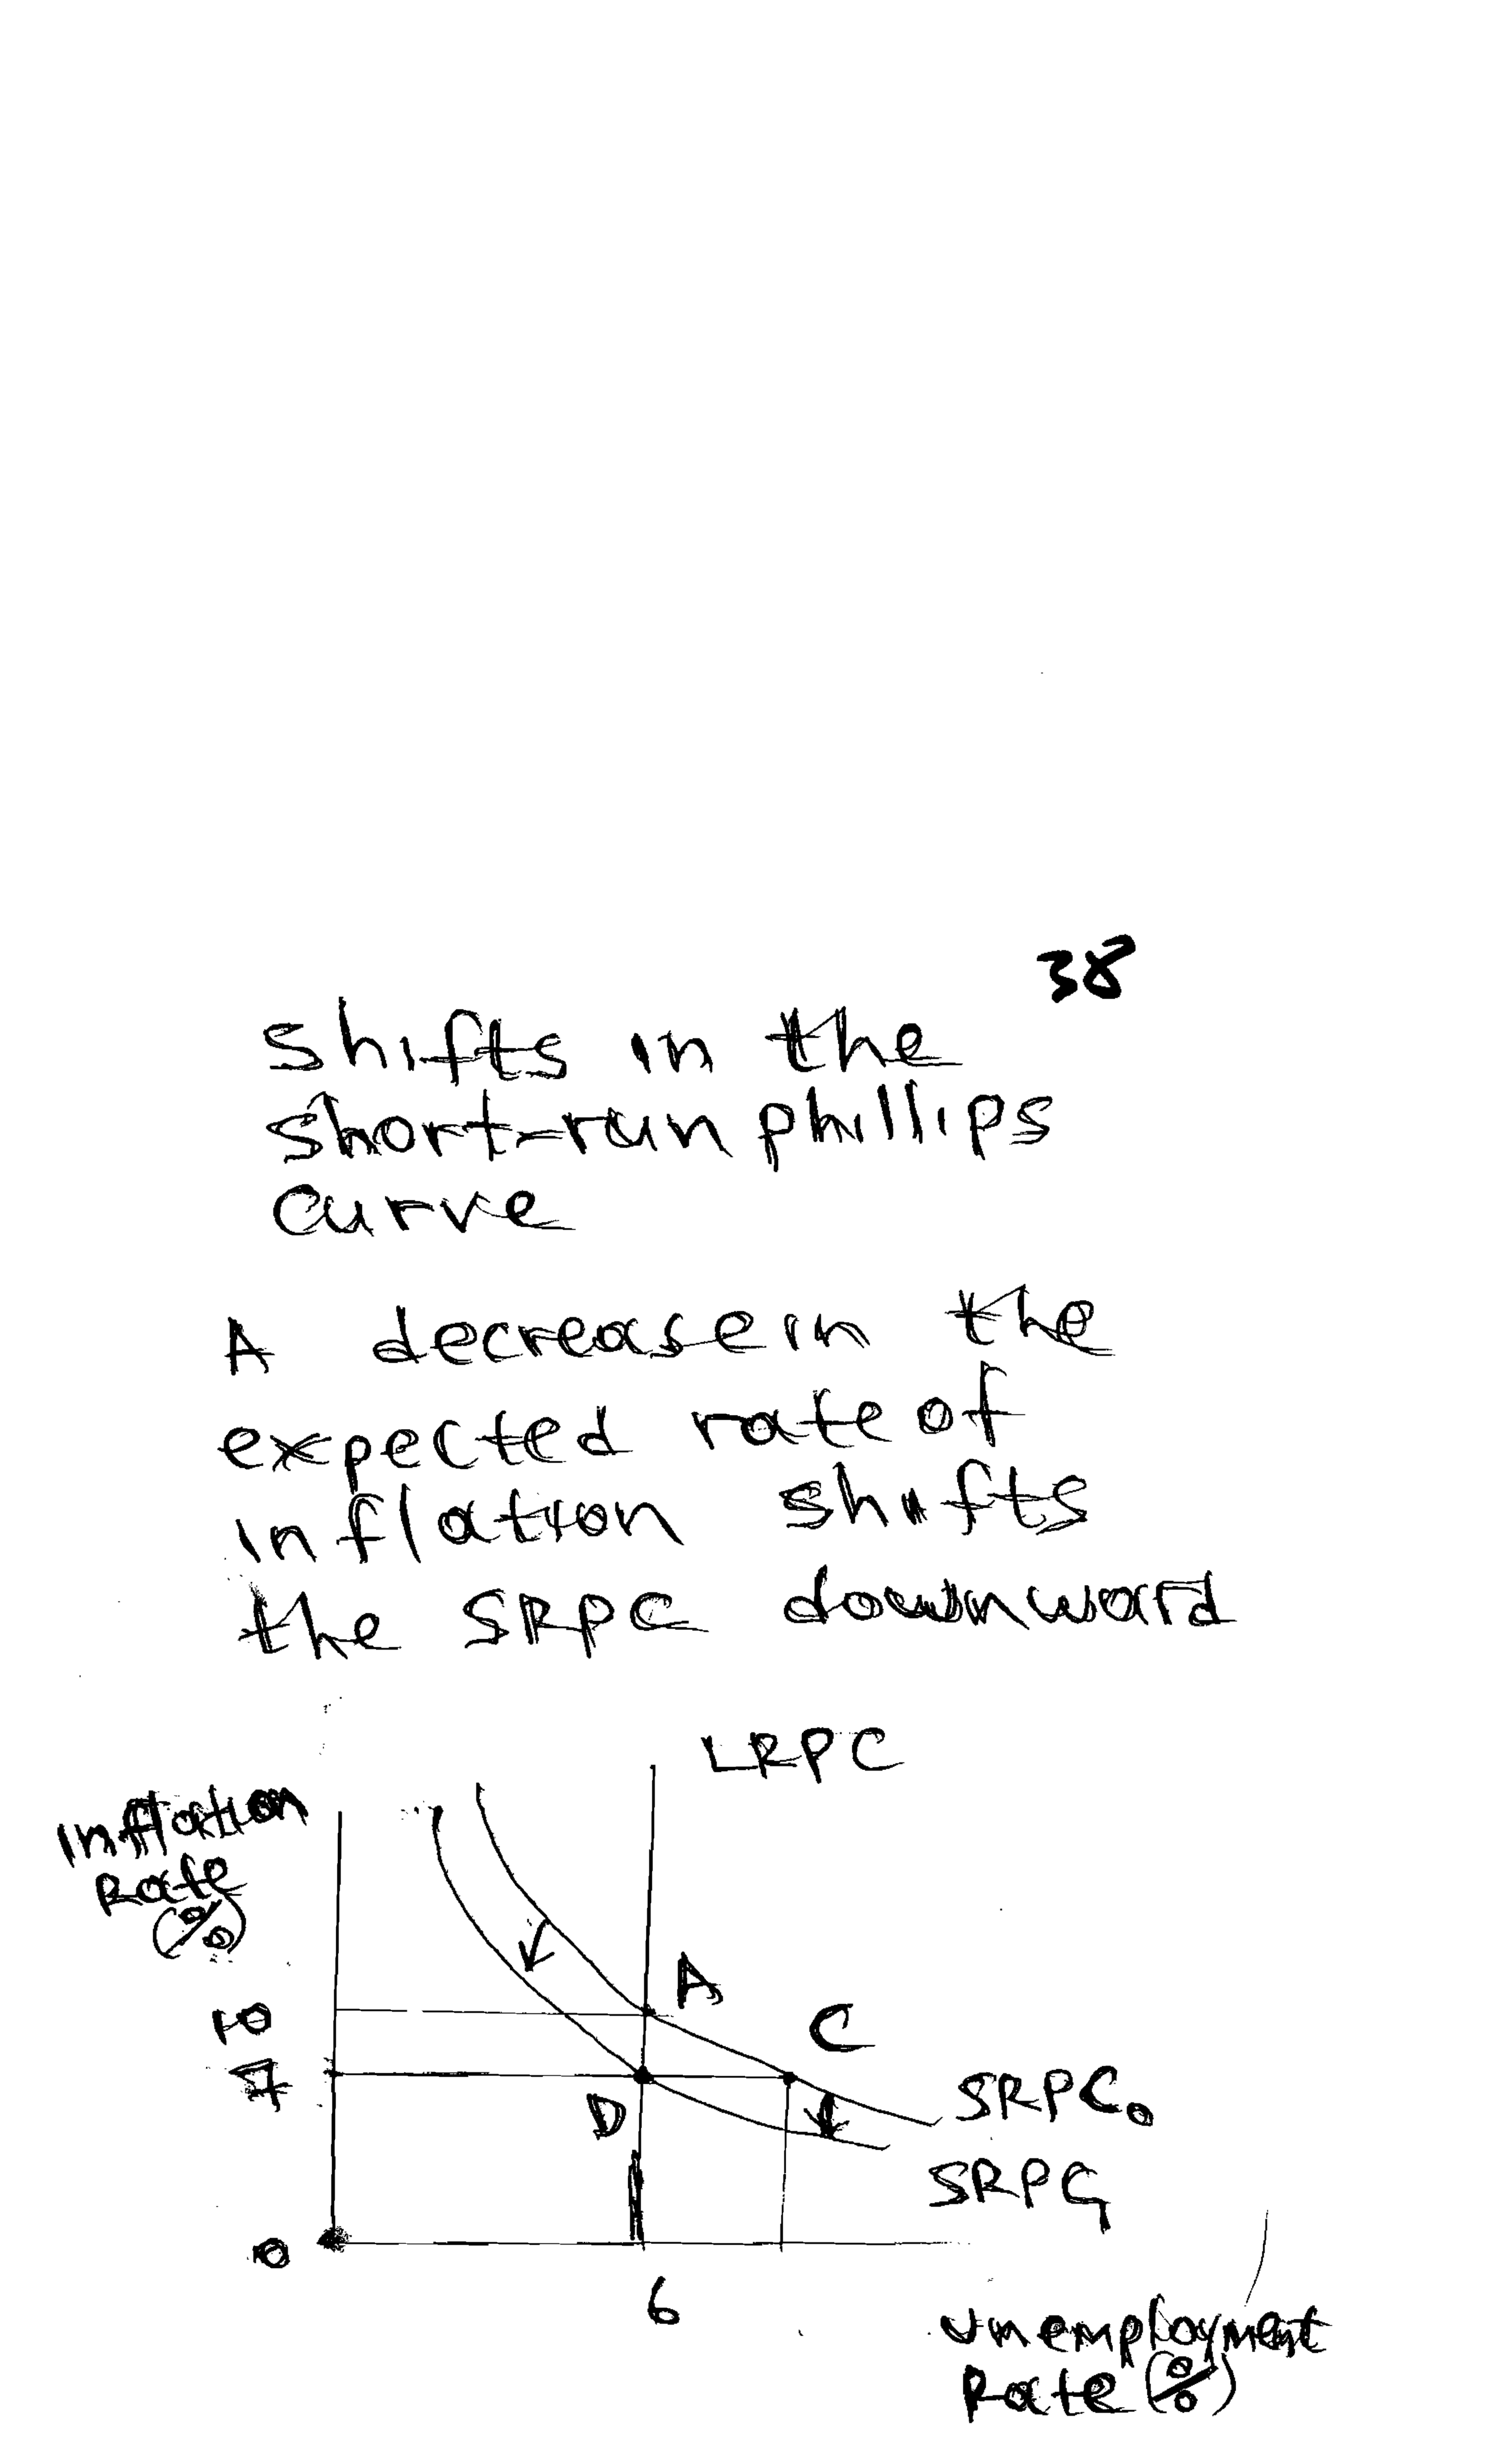 38
Shifts in the
short-run phillips
curve
A decrease in the
expected rate of
inflation shifts
the SRPC downward
LRPC
Inflation
Rate
(%)
A
10
C
7
SRPC0
D
SRPC1
0
6
Unemployment
Rate (%)